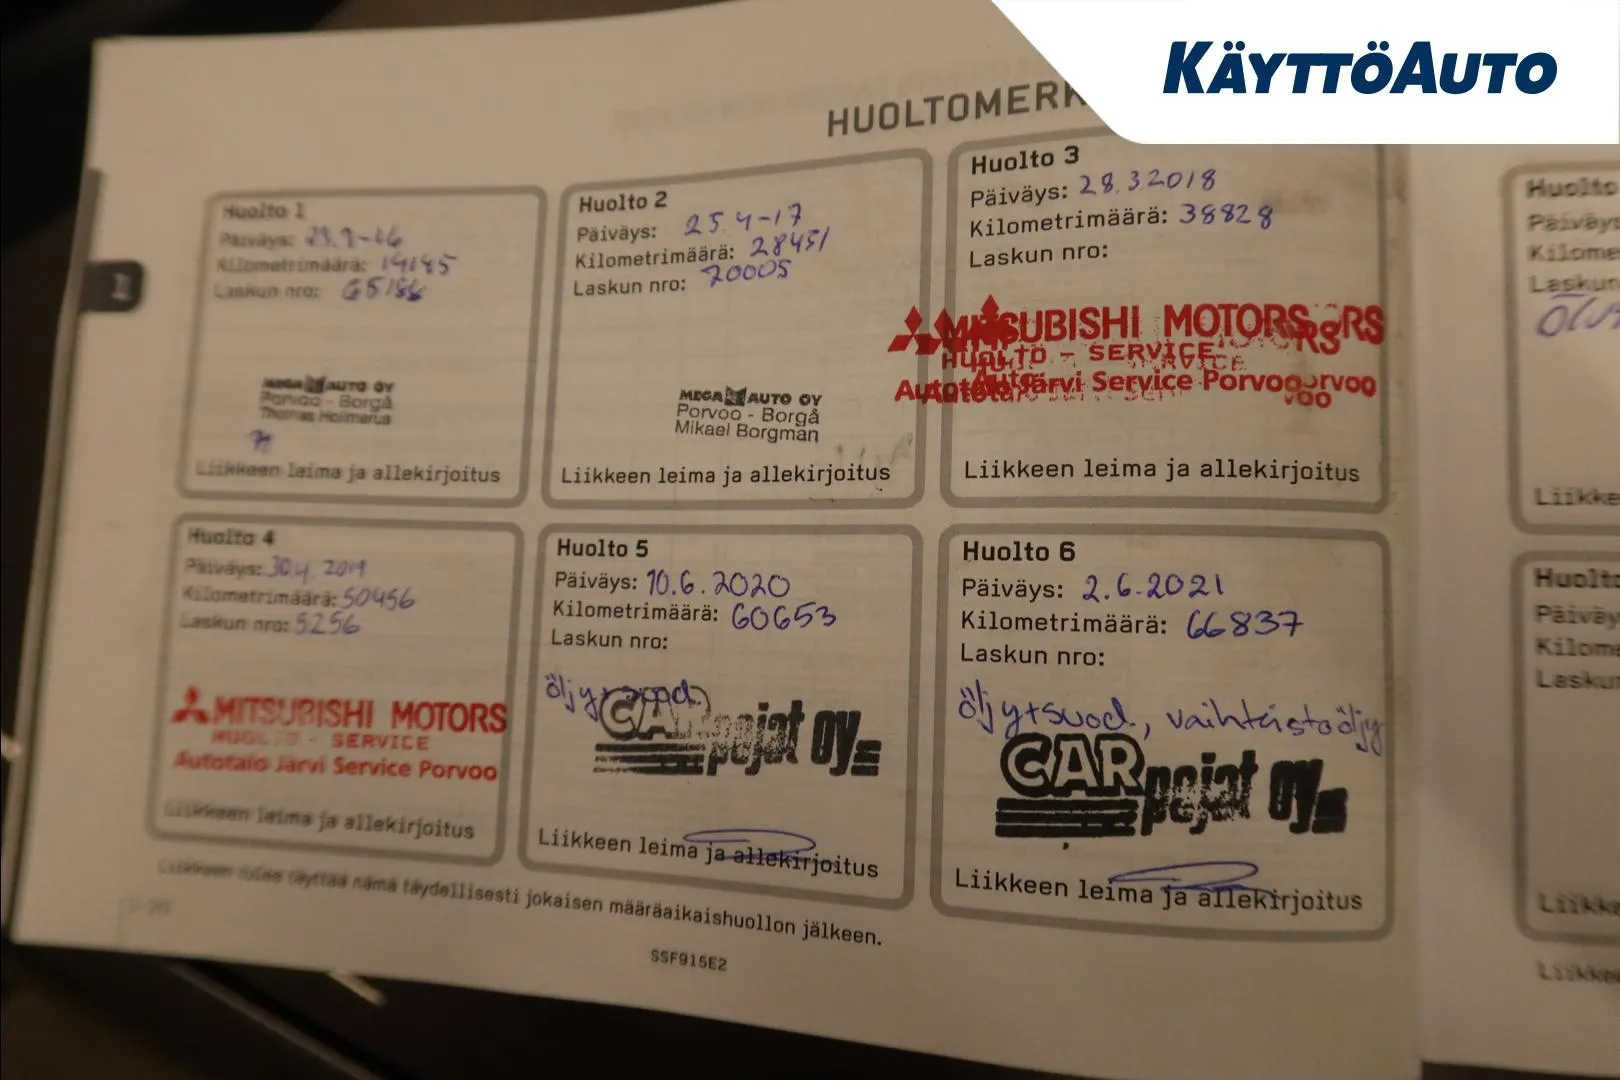 KÄYTTÖAUTO
HUOLTOMERK
Huolto 1
Päiväys:
Kilometrimäärä: 14185
Laskun nro:
MEGA AUTO OY
Porvoo - Borgå
Thomas
Liikkeen leima ja allekirjoitus
Huolto 2
Päiväys: 25.4-17
Kilometrimäärä: 28451
Laskun nro: 70005
MEGA AUTO OY
Porvoo - Borgå
Mikael Borgman
Liikkeen leima ja allekirjoitus
Huolto 3
Päiväys: 28.3.2018
Kilometrimäärä: 38828
Laskun nro:
MITSUBISHI MOTORS
HUOLTO - SERVICE
Autotalo Järvi Service Porvoo
Liikkeen leima ja allekirjoitus
Huolto 4
Päiväys: 30.4. 2019
Kilometrimäärä: 50456
Laskun nro: 5256
MITSUBISHI MOTORS
HUOLTO - SERVICE
Autotalo Järvi Service Porvoo
Liikkeen leima ja allekirjoitus
Huolto 5
Päiväys: 10.6.2020
Kilometrimäärä: 60653
Laskun nro:
öljy+suod.
CAR pojat oy
Liikkeen leima ja allekirjoitus
Huolto 6
Päiväys: 2.6.2021
Kilometrimäärä: 66837
Laskun nro:
öljy+suod., vaihteistoöljy
CAR pojat oy
Liikkeen leima ja allekirjoitus
Liikkeen tulee täyttää nämä täydellisesti jokaisen määräaikaishuollon jälkeen.
SSF915E2
Huolto
Päiväys
Kilome
Laskun
Liikke
Huolto
Päiväy
Kilom
Lasku
Liikke